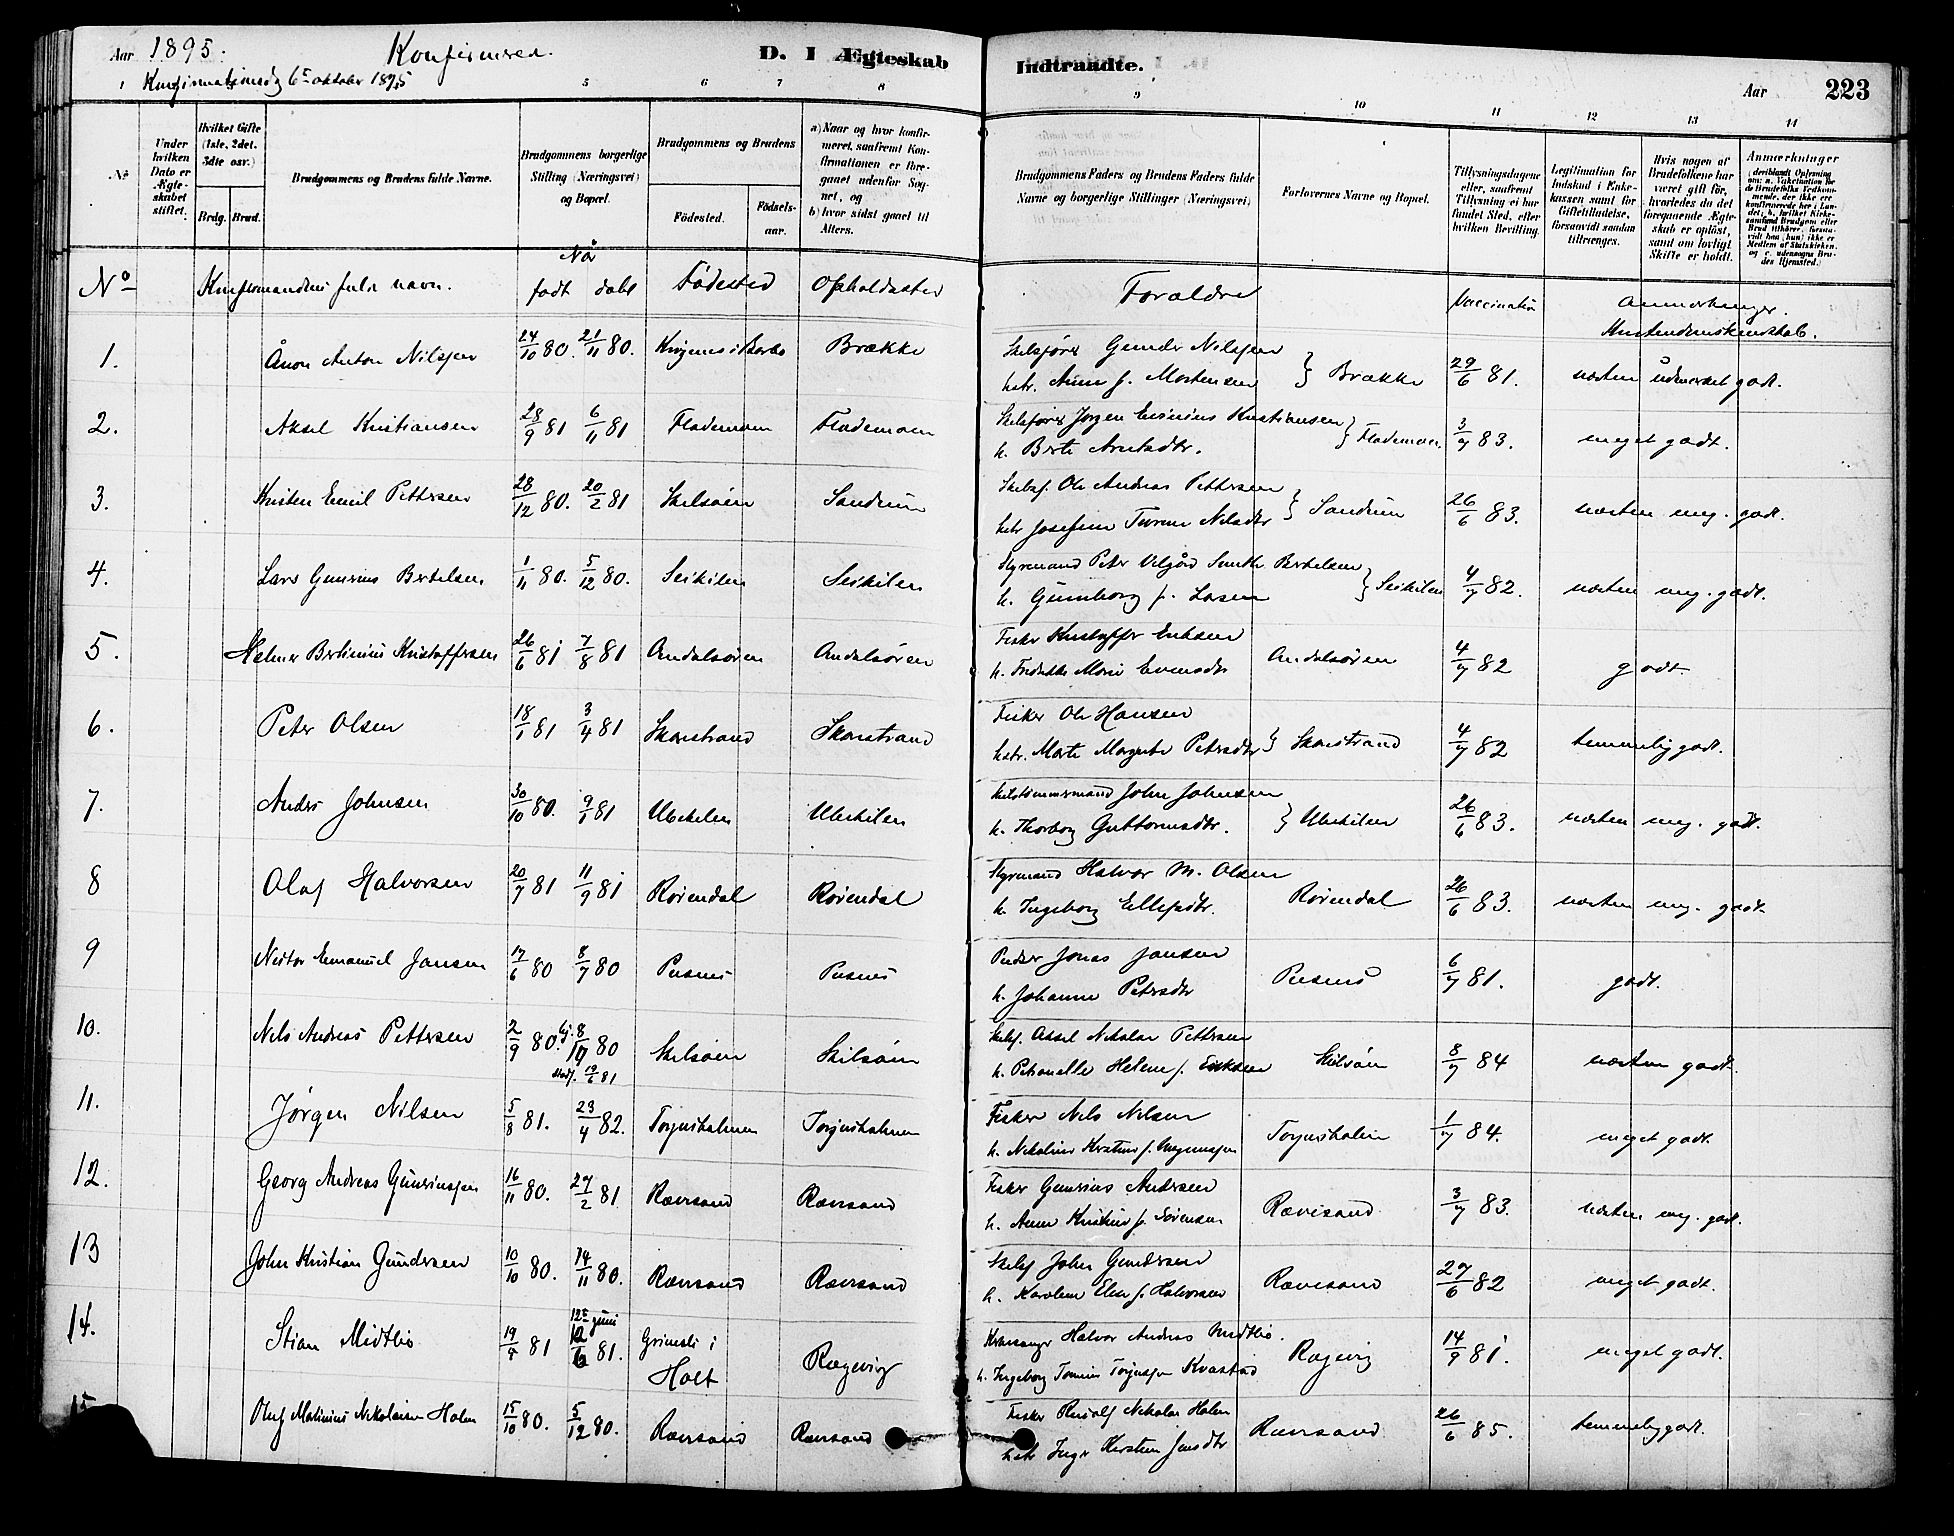 Aar 1895. Konfirmerede. D. I Ægteskab Indtraadte. Aar 223
Konfirmationsdag 6te oktober 1895
1 5 6 7 8 9 10 11 12 13 14
No
Under hvilken Dato er Ægteskabet stiftet.
Hvilket Gifte (1ste, 2det, 3die osv.)
Brdg. Brud.
Brudgommens og Brudens fulde Navne.
Brudgommens borgerlige Stilling (Næringsvei) og Bopæl.
Brudgommens og Brudens
Fødested. Fødselsaar.
a) Naar og hvor konfirmeret, saafremt Konfirmationen er foregaaet udenfor Sognet, og
b) hvor sidst gaaet til Alters.
Brudgommens Faders og Brudens Faders fulde Navne og borgerlige Stillinger (Næringsvei)
Forlovernes Navne og Bopæl.
Tillysningsdagene eller, saafremt Tillysning ei har fundet Sted, efter hvilken Bevilling.
Legitimation for Indskud i Enkekassen samt for Giftetilladelse, forsaavidt saadan tiltrænges.
Hvis nogen af Brudefolkene har været gift før, hvorledes da det foregaaende Ægteskab er opløst, samt om lovligt Skifte er holdt.
Anmærkninger
No Konfirmandens fulde navn. Når født døbt Fødested Opholdssted Forældre Vaccination Anmerkninger. Kristendomskundskab.
1. Ånon Anton Nilssen 24/10 80. 21/11 80. Brække Skibsfører Gunder Nilssen
hstr. Anne f. Mortensen } Brække 29/6 81. næsten udmerket godt.
2. Aksel Kristiansen 28/9 81 6/11 81 Flademoen Flademoen Skibsfører Jørgen Kristiansen
h. Berte } Flademoen. 3/7 83. meget godt.
3. Kristen Emil Pettersen 28/12 80. 20/2 81 Skilsøen Sandum Skibsf. Ole Andreas Pettersen
hstr Josefine Nilsdtr } Sandum 26/6 83. næsten meg. godt.
4. Lars Gunerius Bertelsen 1/11 80. 5/12 80. Seikilen Seikilen Styrmand Peter Smith Bertelsen
h. Gunborg f. Larsen } Seikilen 4/7 82. næsten meg. godt.
5. Helmer Bertinius Kristoffersen 26/6 81 7/8 81 Andalsøren Andalsøren Fisker Kristoffer Eriksen
h. Fredrikke Marie Evensdtr Andalsøren 4/7 82 godt.
6. Peter Olsen 18/1 81 3/4 81 Skarestrand Skarestrand Fisker Ole Hansen
hstr. Marte Margrete Petersdtr } Skarestrand 4/7 82 temmelig godt.
7. Anders Johnsen 30/10 80. 9/1 81 Ubekilen Ubekilen Skibstømmermand John Johnsen
h. Thorborg Guttormsdtr. } Ubekilen 26/6 83. næsten meg. godt.
8 Olaf Halvorsen 20/7 81 11/9 81 Rørendal Rørendal Styrmand Halvor M. Olsen
h. Ingeborg Ellefsdtr. Rørendal 26/6 83. næsten meg. godt.
9 Nestor Emanuel Jansen 17/6 80 8/7 80 Pusnes Pusnes Jonas Jansen
h. Johanne Petersdtr Pusnes 6/7 81. godt.
10. Nils Andreas Pettersen 2/9 80. hj. 8/10 80 stadf. 19/6 81 Skilsøen Skilsøen Skibsf. Aksel Nikolai Pettersen
h. Petronelle Helene f. Eriksen Skilsøen 8/7 84 næsten godt.
11. Jørgen Nilsen 5/8 81. 23/4 82. Torjusholmen Torjusholmen Fisker Nils Nilsen
h. Nikoline Kirstine f. Torjusholm 1/7 84. meget godt.
12. Georg Andreas Gunerussen 16/11 80. 27/2 81 Rævesand Rævesand Fisker Gunerius Andersen
h. Anne Kristine f. Sørensen Rævesand 3/7 83. næsten meg. godt.
13 John Kristian Gundersen 10/10 80. 14/11 80. Rævesand Rævesand Skibsf John Gundersen
h. Karoline Elen f. Halvorsen Rævesand 27/6 82 meget godt.
14. Stian Midtbø 19/4 81 12te juni 12/6 81. i Holt Ragevig Kirkesanger Halvor Andreas Midtbø.
h. Ingeborg Tomine Torjussen Kvastad Ragevig 14/9 81. meget godt.
15 Oluf Matinius Nikolaisen Holm 15/10 80. 5/12 80. Rævesand Rævesand Fisker Rudolf Nikolai Holm
hstr Inger Kirstine Jensdtr Rævesand 26/6 85. temmelig godt.